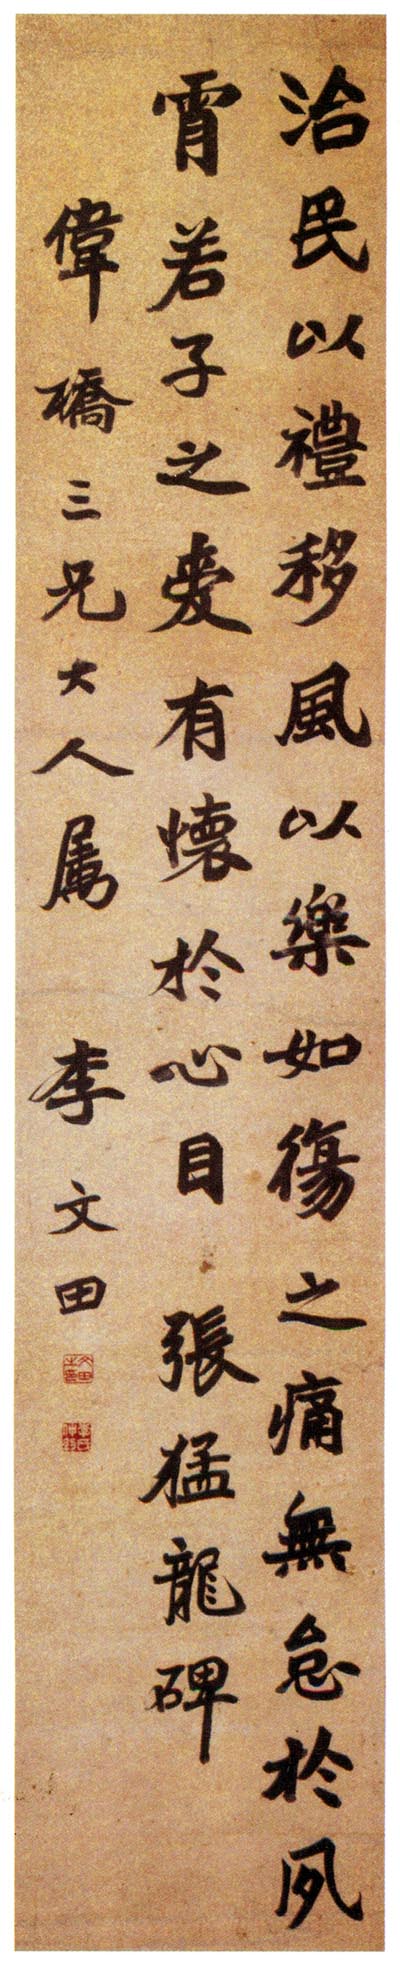 治民以禮移風以樂如傷之痛無怠於夙
宵若子之愛有懷於心目 張猛龍碑
偉礄三兄大人属 李文田